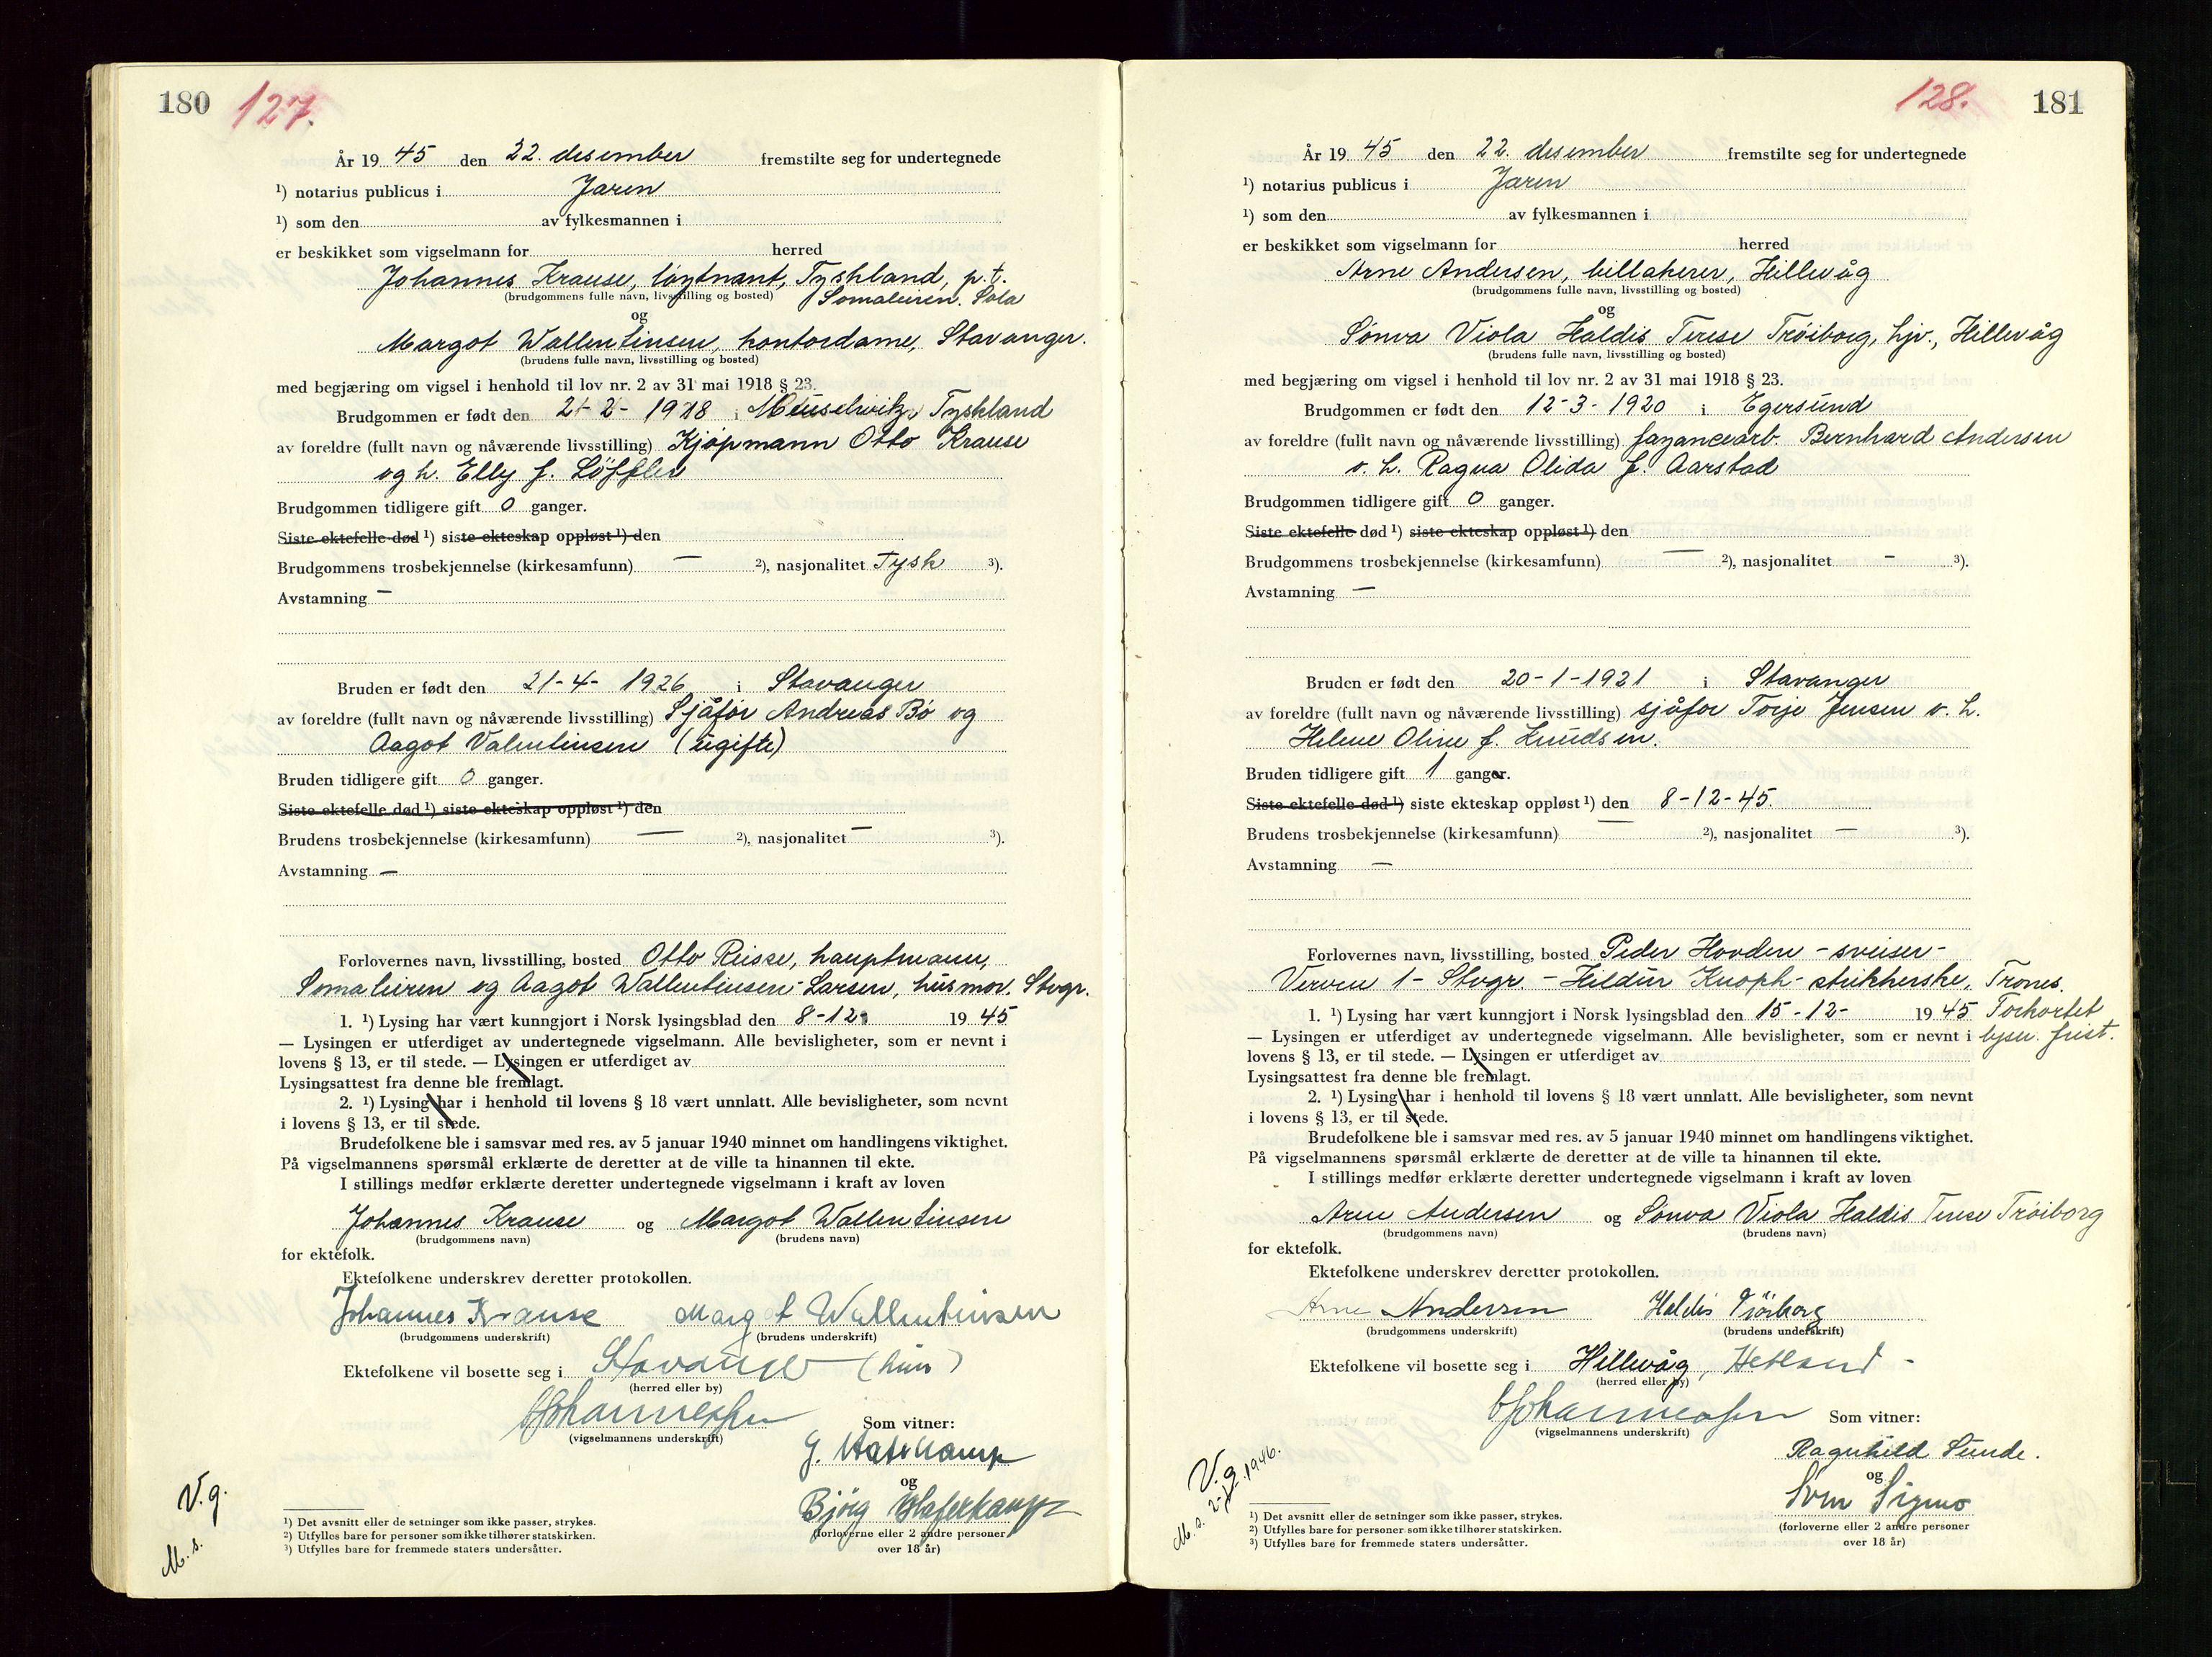 180 127.
År 19 45 den 22. desember fremstilte seg for undertegnede
¹) notarius publicus i Jæren
¹) som den av fylkesmannen i
er beskikket som vigselmann for herred
Johannes Krause, løytnant, Tyskland, p.t.
(brudgommens fulle navn, livsstilling og bosted) Somaleiren. Sola
og
Margot Wallentinsen, kontordame, Stavanger.
(brudens fulle navn, livsstilling og bosted)
med begjæring om vigsel i henhold til lov nr. 2 av 31 mai 1918 § 23.
Brudgommen er født den 21-2-1918 i Meuselwitz, Tyskland
av foreldre (fullt navn og nåværende livsstilling) Kjøpmann Otto Krause
og h. Elly f. Löffler
Brudgommen tidligere gift 0 ganger.
Siste ektefelle død ¹) siste ekteskap oppløst ¹) den
Brudgommens trosbekjennelse (kirkesamfunn) — ²), nasjonalitet Tysk ³).
Avstamning —
Bruden er født den 21-4-1926 i Stavanger
av foreldre (fullt navn og nåværende livsstilling) Sjåfør Andreas Bø og
Aagot Valentinsen (ugifte)
Bruden tidligere gift 0 ganger.
Siste ektefelle død ¹) siste ekteskap oppløst ¹) den
Brudens trosbekjennelse (kirkesamfunn) — ²), nasjonalitet — ³).
Avstamning —
Forlovernes navn, livsstilling, bosted Otto Reisse, hauptmann,
Somaleiren og Aagot Wallentinsen-Larsen, husmor. Stvgr.
1. ¹) Lysing har vært kunngjort i Norsk lysingsblad den 8-12 1945
— Lysingen er utferdiget av undertegnede vigselmann. Alle bevisligheter, som er nevnt i
lovens § 13, er til stede. — Lysingen er utferdiget av
Lysingsattest fra denne ble fremlagt.
2. ¹) Lysing har i henhold til lovens § 18 vært unnlatt. Alle bevisligheter, som nevnt
i lovens § 13, er til stede.
Brudefolkene ble i samsvar med res. av 5 januar 1940 minnet om handlingens viktighet.
På vigselmannens spørsmål erklærte de deretter at de ville ta hinannen til ekte.
I stillings medfør erklærte deretter undertegnede vigselmann i kraft av loven
Johannes Krause og Margot Wallentinsen
(brudgommens navn) (brudens navn)
for ektefolk.
Ektefolkene underskrev deretter protokollen.
Johannes Krause Margot Wallentinsen
(brudgommens underskrift) (brudens underskrift)
Ektefolkene vil bosette seg i Stavanger (hun)
(herred eller by)
Som vitner:
(vigselmannens underskrift)
og
Bjørg Haferkamp
V.g.
M.s.
(forloverne eller 2 andre personer
over 18 år)
¹) Det avsnitt eller de setninger som ikke passer, strykes.
²) Utfylles bare for personer som ikke tilhører statskirken.
³) Utfylles bare for fremmede staters undersåtter.
128. 181
År 19 45 den 22. desember fremstilte seg for undertegnede
¹) notarius publicus i Jæren
¹) som den av fylkesmannen i
er beskikket som vigselmann for herred
Arne Andersen, billakerer, Hillevåg
(brudgommens fulle navn, livsstilling og bosted)
og
Sønva Viola Haldis Terese Trøiborg, hjv., Hillevåg
(brudens fulle navn, livsstilling og bosted)
med begjæring om vigsel i henhold til lov nr. 2 av 31 mai 1918 § 23.
Brudgommen er født den 12-3-1920 i Egersund
av foreldre (fullt navn og nåværende livsstilling) fayancearb. Bernhard Andersen
o. h. Ragna Olida f. Aarstad
Brudgommen tidligere gift 0 ganger.
Siste ektefelle død ¹) siste ekteskap oppløst ¹) den
Brudgommens trosbekjennelse (kirkesamfunn) — ²), nasjonalitet - ³).
Avstamning —
Bruden er født den 20-1-1921 i Stavanger
av foreldre (fullt navn og nåværende livsstilling) sjåfør Torje Jensen o. h.
Helene Oline f. Knudsen.
Bruden tidligere gift 1 ganger.
Siste ektefelle død ¹) siste ekteskap oppløst ¹) den 8-12-45.
Brudens trosbekjennelse (kirkesamfunn) — ²), nasjonalitet — ³).
Avstamning —
Forlovernes navn, livsstilling, bosted Peder Hovden - sveiser -
Verven 1 - Stvgr. - Hildur Knoph - strikkerske, Trones.
1. ¹) Lysing har vært kunngjort i Norsk lysingsblad den 15-12- 1945 Forkortet
— Lysingen er utferdiget av undertegnede vigselmann. Alle bevisligheter, som er nevnt i lysn. frist.
lovens § 13, er til stede. — Lysingen er utferdiget av
Lysingsattest fra denne ble fremlagt.
2. ¹) Lysing har i henhold til lovens § 18 vært unnlatt. Alle bevisligheter, som nevnt
i lovens § 13, er til stede.
Brudefolkene ble i samsvar med res. av 5 januar 1940 minnet om handlingens viktighet.
På vigselmannens spørsmål erklærte de deretter at de ville ta hinannen til ekte.
I stillings medfør erklærte deretter undertegnede vigselmann i kraft av loven
Arne Andersen og Sønva Viola Haldis Terese Trøiborg
(brudgommens navn) (brudens navn)
for ektefolk.
Ektefolkene underskrev deretter protokollen.
Arne Andersen Haldis Trøiborg
(brudgommens underskrift) (brudens underskrift)
Ektefolkene vil bosette seg i Hillevåg, Hetland -
(herred eller by)
Som vitner:
(vigselmannens underskrift)
Ragnhild Sunde.
og
V.g.
M.s. 1946.
(forloverne eller 2 andre personer
over 18 år)
¹) Det avsnitt eller de setninger som ikke passer, strykes.
²) Utfylles bare for personer som ikke tilhører statskirken.
³) Utfylles bare for fremmede staters undersåtter.